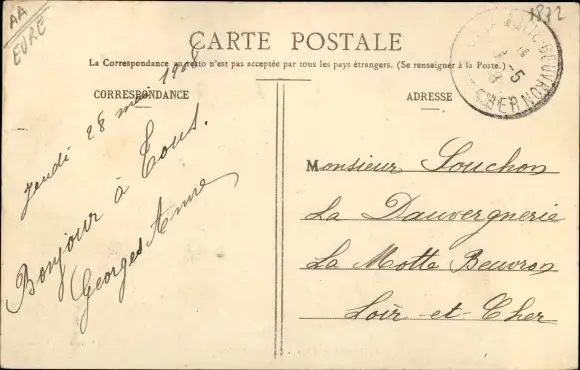 AA
EURE
1872
CARTE POSTALE
La Correspondance au recto n'est pas acceptée par tous les pays étrangers. (Se renseigner à la Poste.)
CORRESPONDANCE
Jeudi 28 mai 1908
Bonjour à Tous.
Georges Anne
ADRESSE
Monsieur Souchon
La Dauvergnerie
La Motte Beuvron
Loir-et-Cher
BEUVRON
CHER